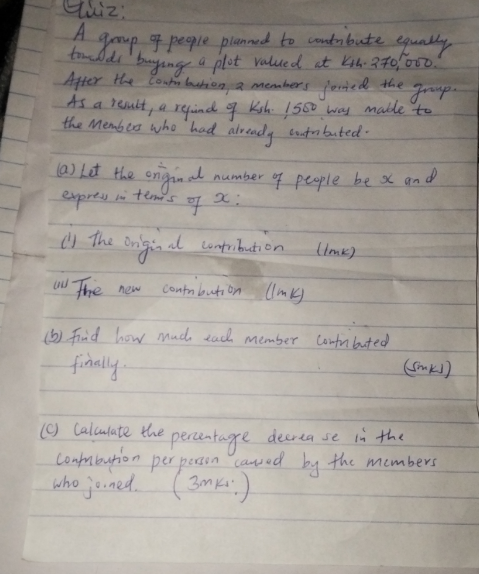 Quiz:
A group of people planned to contribute equally
towards buying a plot valued at Ksh. 270,000.
After the contribution, 2 members joined the group.
As a result, a refund of Ksh. 1,500 was made to
the members who had already contributed.
(a) Let the original number of people be x and
express in terms of x:
(i) The original contribution (1mk)
(ii) The new contribution (1mk)
(b) Find how much each member contributed
finally. (5mks)
(c) Calculate the percentage decrease in the
contribution per person caused by the members
who joined. (3mks.)